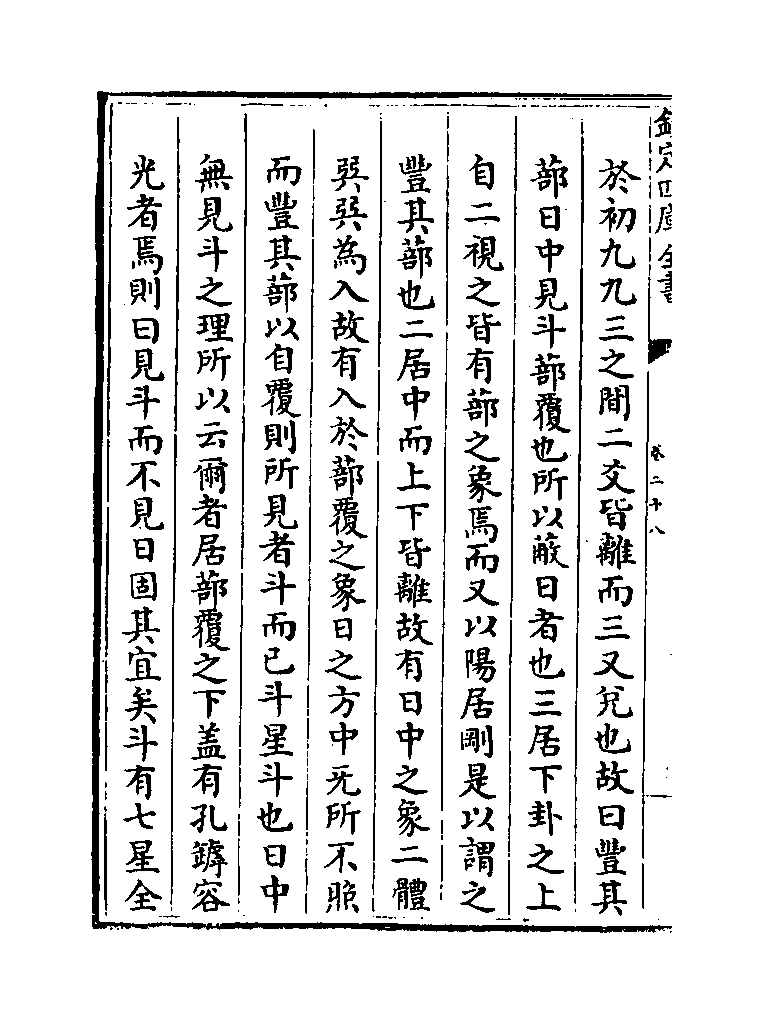 欽定四庫全書
卷二十八
於初九九三之間二爻皆離而三又兊也故曰豐其
蔀日中見斗蔀覆也所以蔽日者也三居下卦之上
自二視之皆有蔀之象焉而又以陽居剛是以謂之
豐其蔀也二居中而上下皆離故有日中之象二體
巽巽為入故有入於蔀覆之象日之方中无所不照
而豐其蔀以自覆則所見者斗而已斗星斗也日中
無見斗之理所以云爾者居蔀覆之下盖有孔罅容
光者焉則曰見斗而不見日固其宜矣斗有七星全